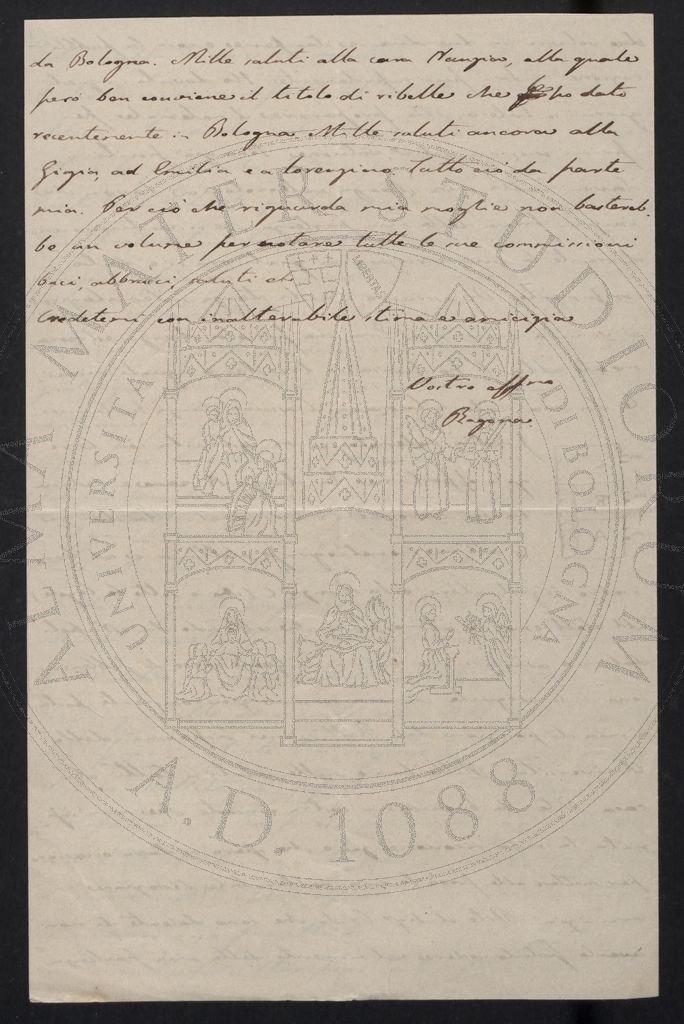 da Bologna. Mille saluti alla cara Nunzia, alla quale
però ben conviene il titolo di ribelle che ho dato
recentemente in Bologna. Mille saluti ancora alla
Gigia, ad Emilia e a Lorenzino. Tutto ciò da parte
mia. Per ciò che riguarda mia moglie non bastereb-
be un volume per notare tutte le sue commissioni
baci, abbracci, saluti etc
Credetemi con inalterabile stima e amicizia
Vostro affmo
Ragona
ALMA MATER STUDIORUM
UNIVERSITA DI BOLOGNA
LIBERTAS
A.D. 1088